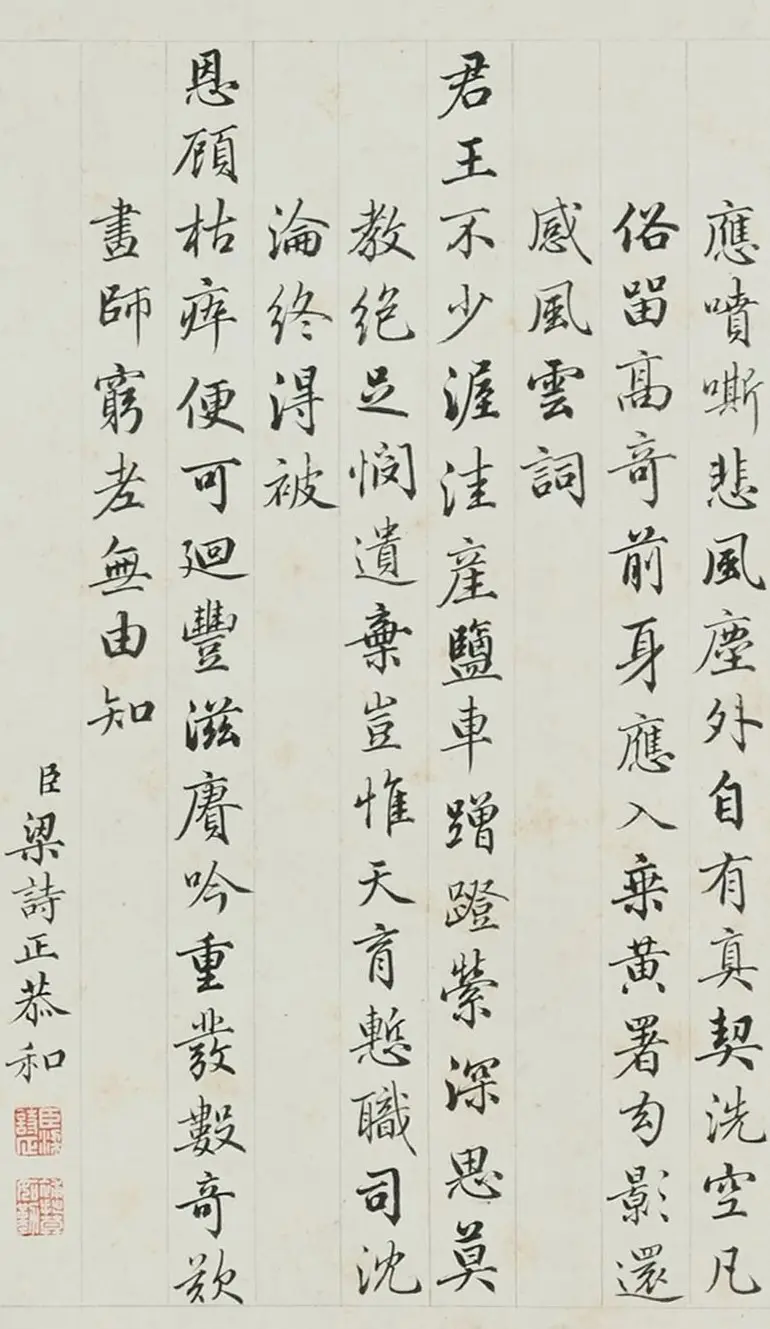 應噴嘶悲風塵外自有真契洗空凡
俗留高奇前身應入乘黃署勾影還
感風雲詞
君王不少渥洼產鹽車蹭蹬縈深思莫
教絕足憫遺棄豈惟天育慙職司沈
淪終得被
恩顧枯瘁便可廻豐滋賡吟重發數奇歎
畫師窮老無由知
臣梁詩正恭和